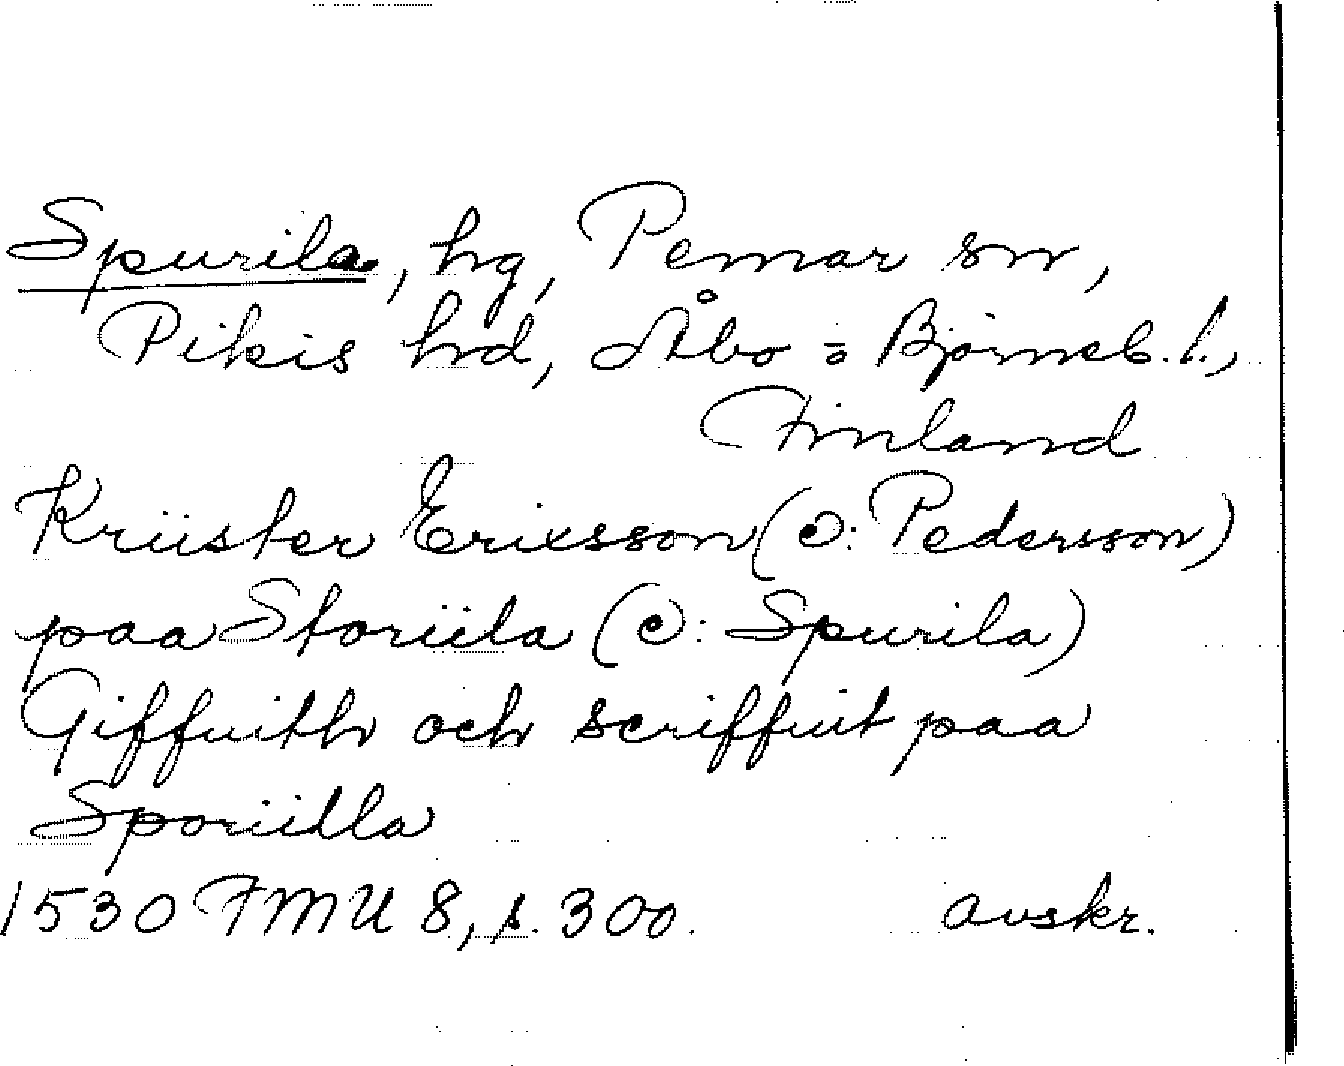 Spurila, hg, Pemar sn,
Pikis hd, Åbo = Björneb. l.,
Finland
Krüster Erixsson (ɔ: Pederson)
paa Storüla (ɔ: Spurila)
Giffuith och scriffuit paa
Sporiilla
1530 FMU 8, s. 300. avskr.